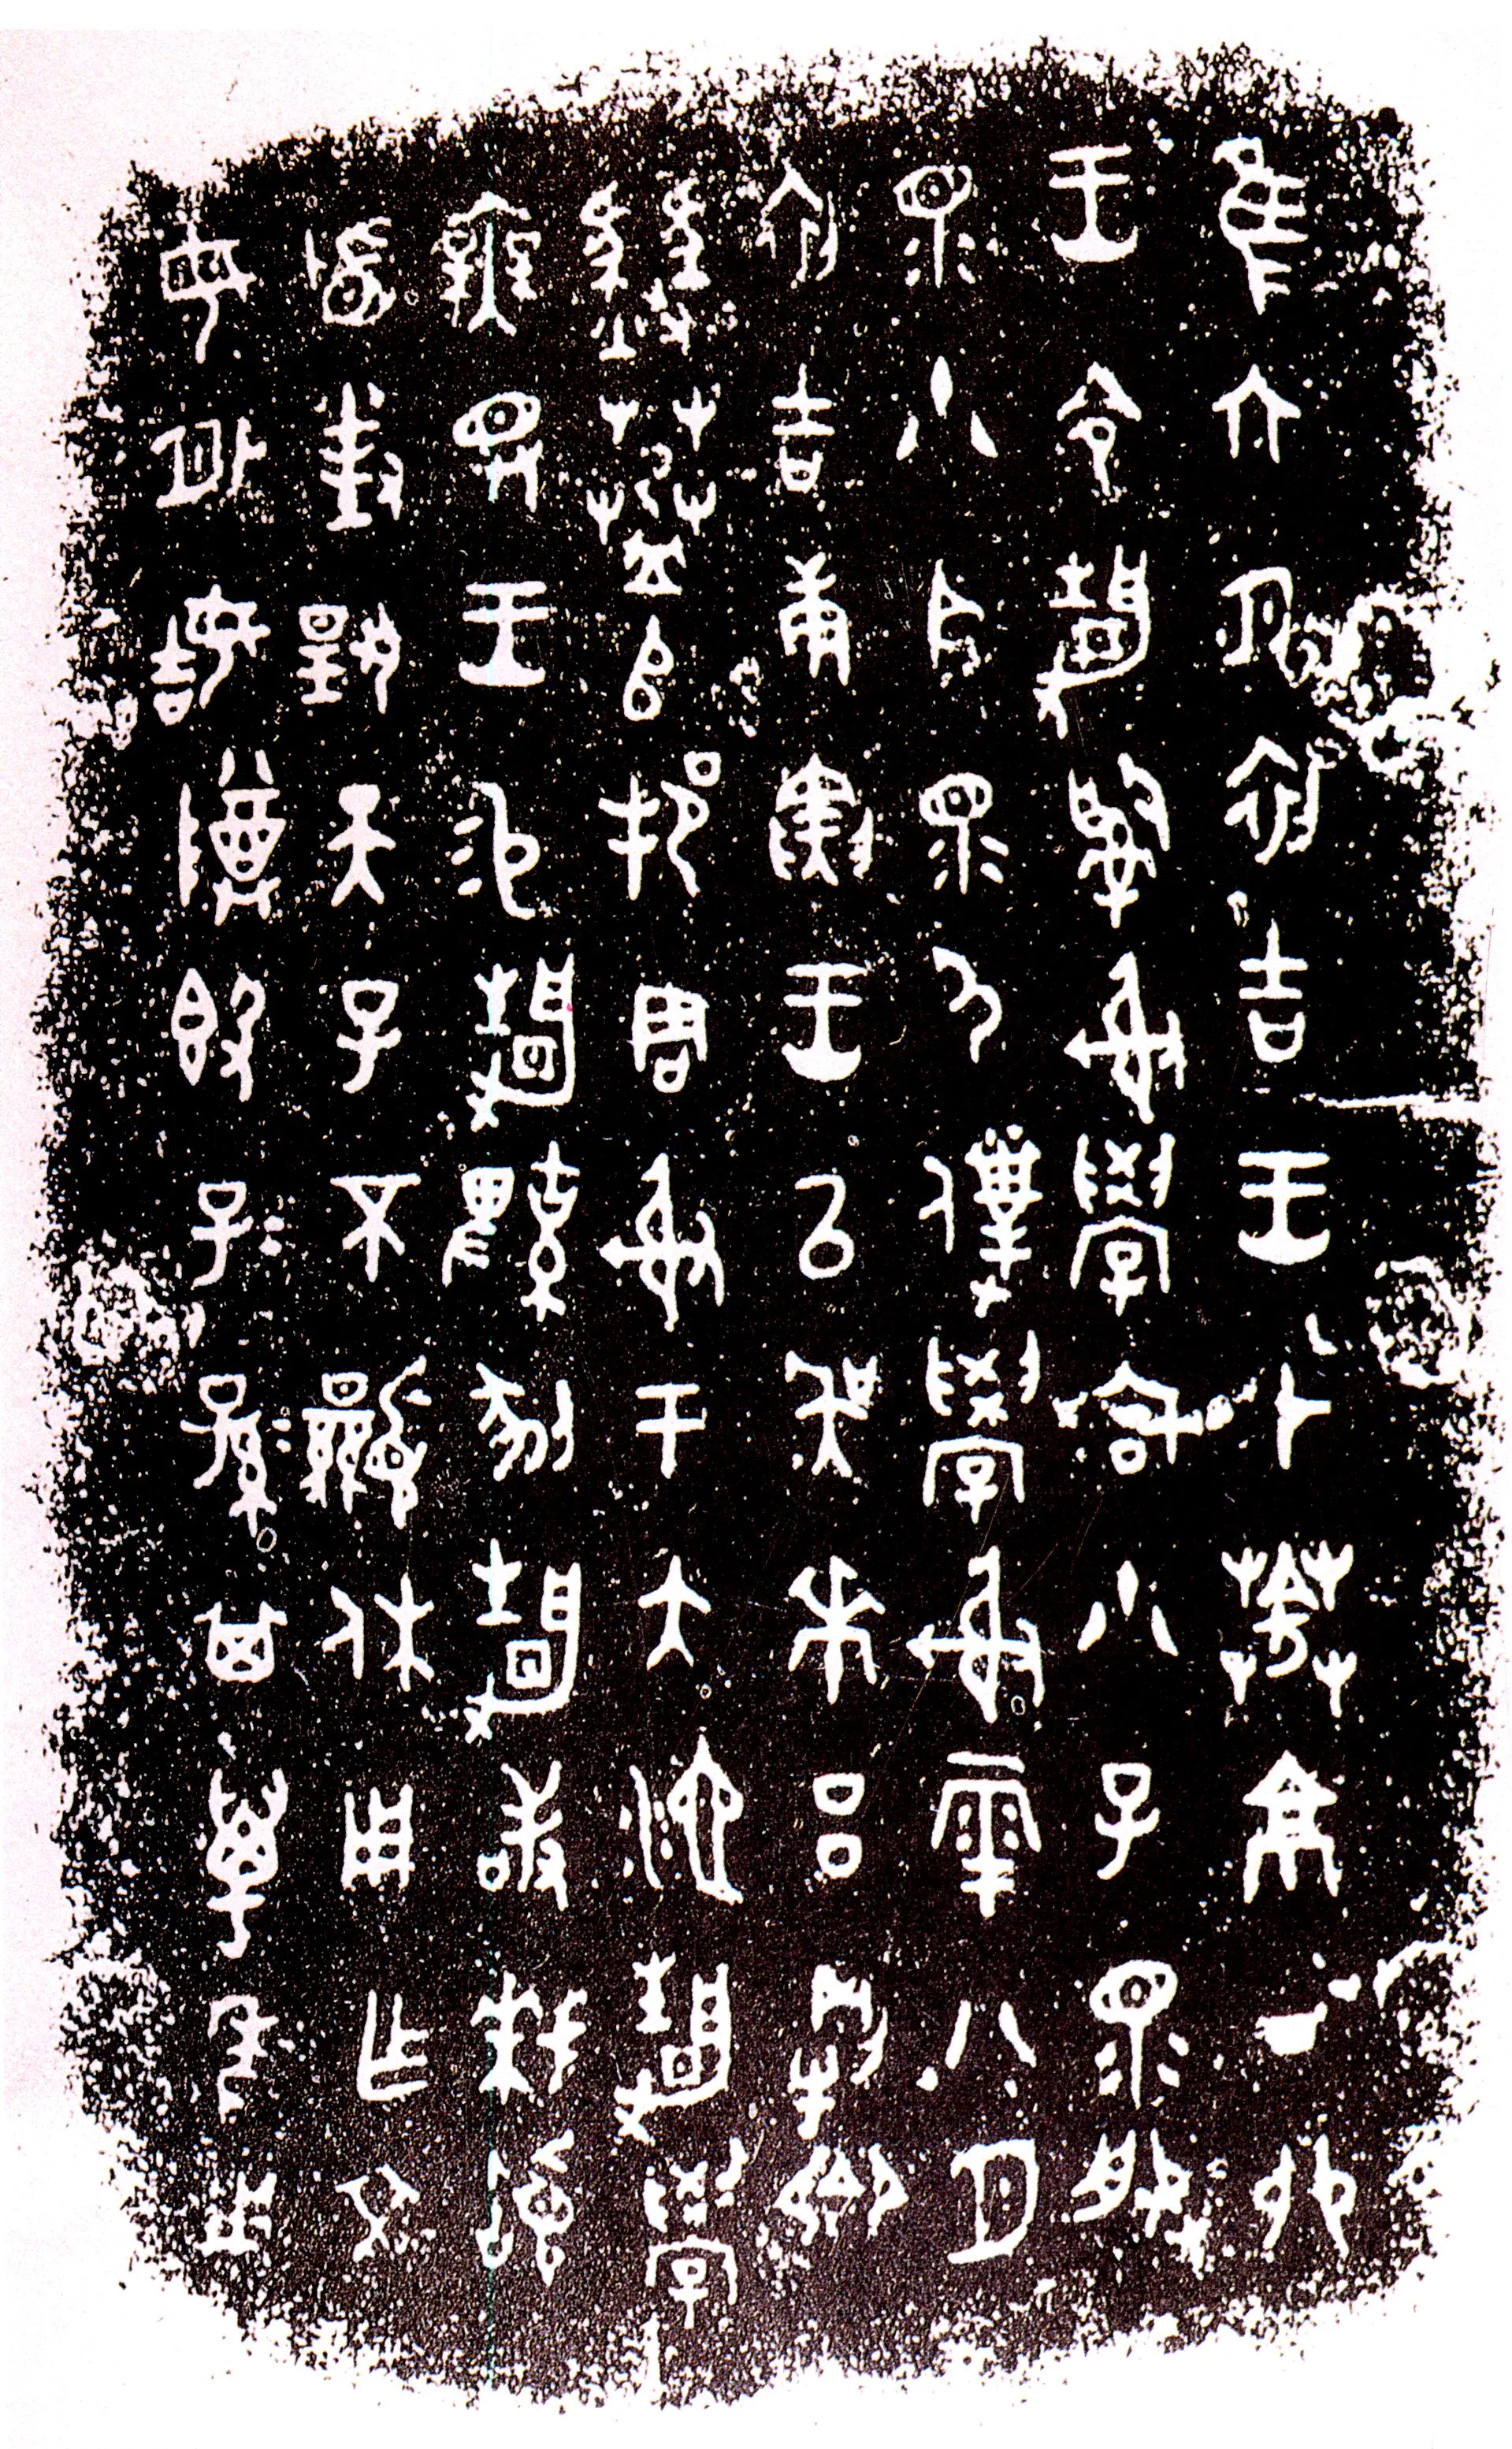 隹六月初吉王才葊京丁卯
王令靜𤔲射學宮小子眔服
眔小臣眔尸僕學射雩八月
初吉庚寅王以吳𠦪呂㓻卿
䓊𠂤邦周射于大池靜學
無斁王易靜鞞剢靜敢拜𩒨
首對揚天子不顯休用乍文
母外姞尊簋子=孫=其萬年用